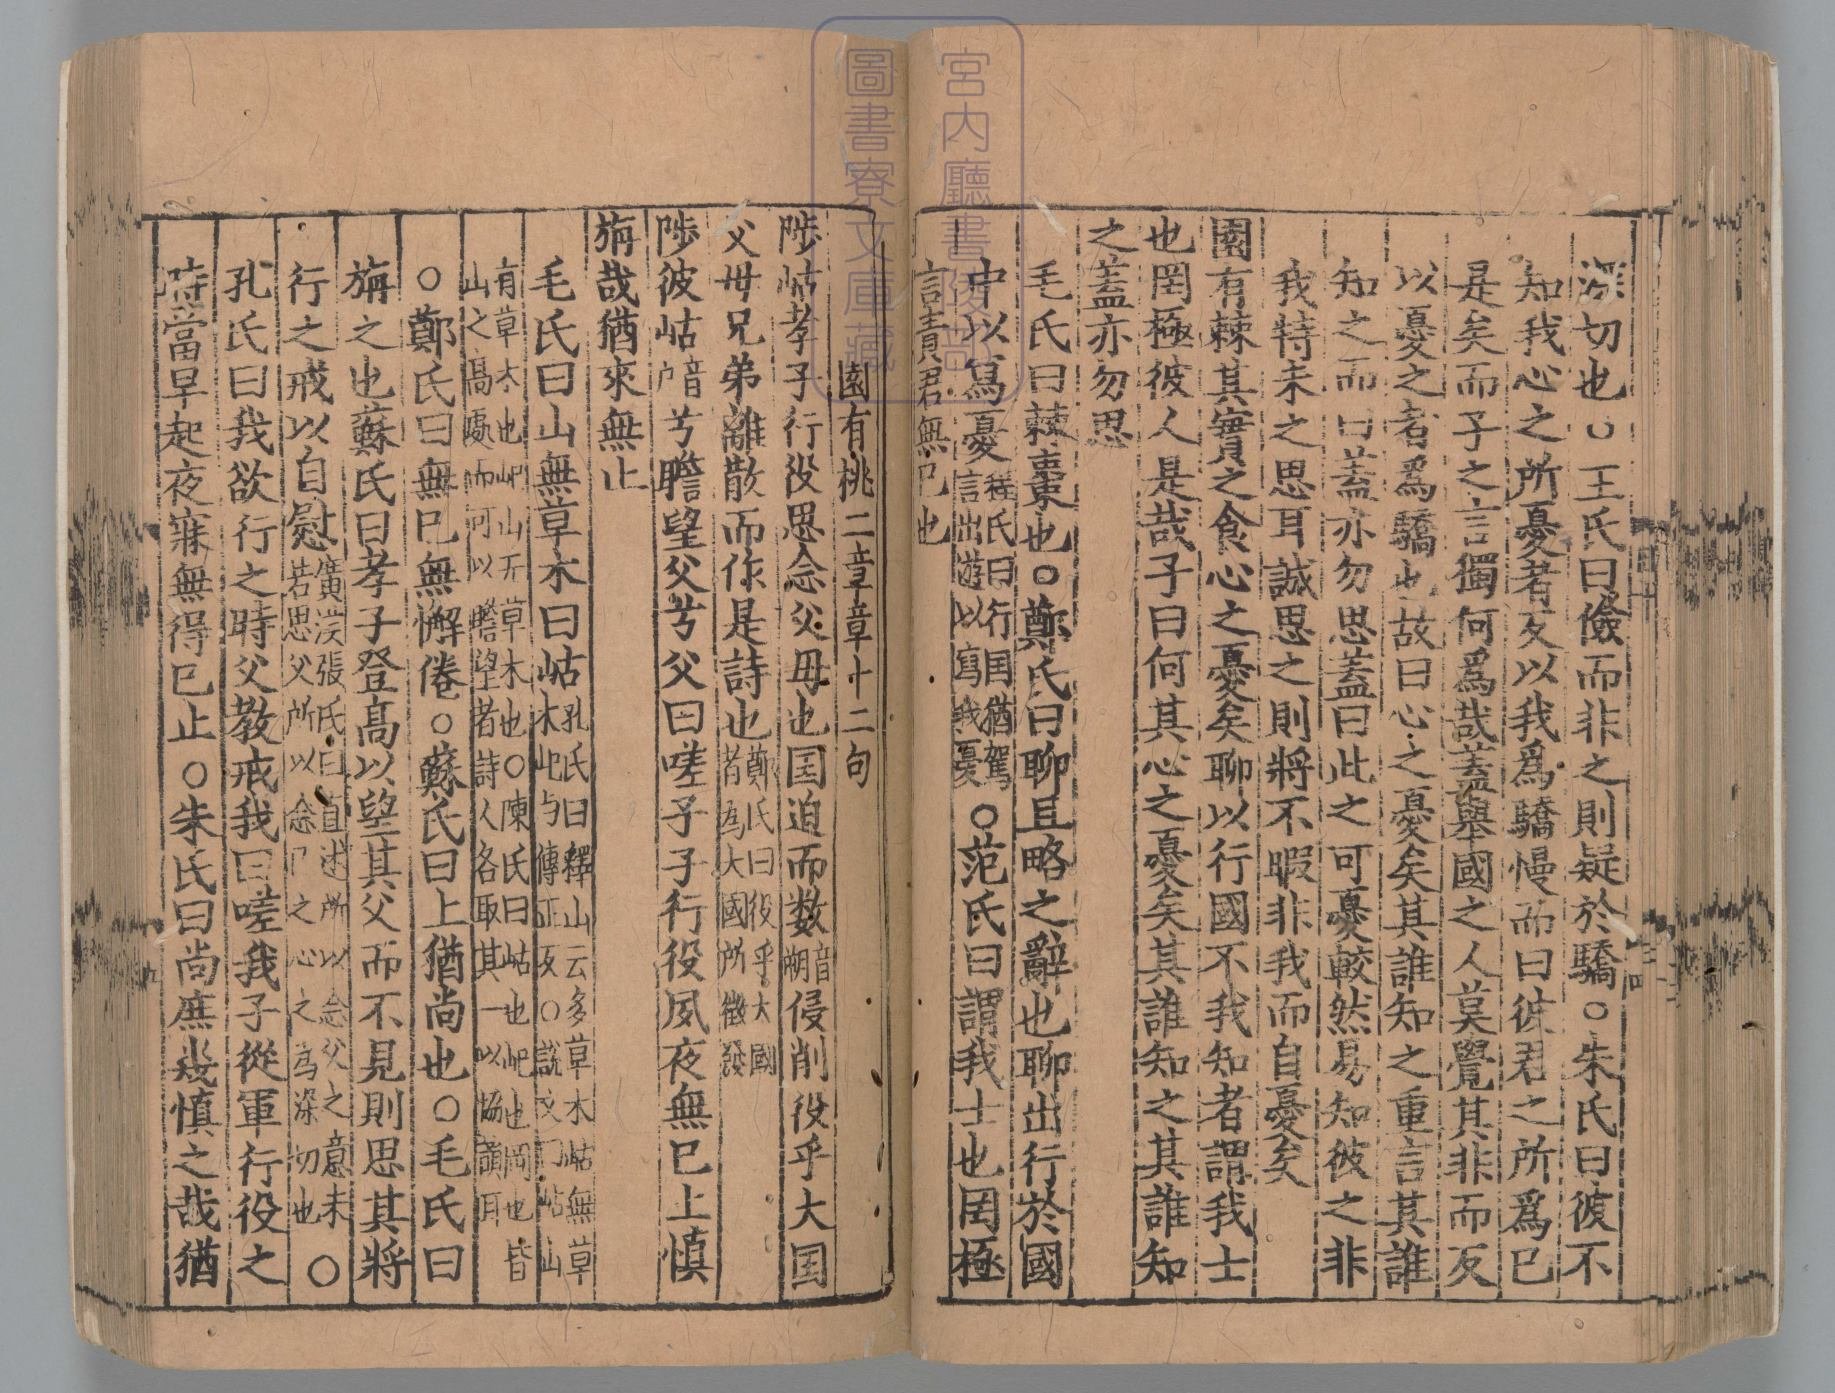 深切也○王氏曰儉而非之則疑於驕○朱氏曰彼不
知我心之所憂者反以我爲驕慢而曰彼君之所爲已
是矣而子之言獨何爲哉蓋舉國之人莫覺其非而反
以憂之者爲驕也故曰心之憂矣其誰知之重言其誰
知之而曰蓋亦勿思蓋曰此之可憂較然易知彼之非
我特未之思耳誠思之則將不暇非我而自憂矣
園有棘其實之食心之憂矣聊以行國不我知者謂我士
也罔極彼人是哉子曰何其心之憂矣其誰知之其誰知
之蓋亦勿思
毛氏曰棘棗也○鄭氏曰聊且略之辭也聊出行於國
中以寫憂程氏曰行国猶駕言出遊以寫我憂○范氏曰謂我士也罔極
言責君無已也
園有桃二章章十二句
陟岵孝子行役思念父毋也国迫而数音朔侵削役乎大国
父毋兄弟離散而作是詩也鄭氏曰役乎大國者為大國所徵發
陟彼岵音户兮瞻望父兮父曰嗟予子行役夙夜無已上慎
旃哉猶來無止
毛氏曰山無草木曰岵孔氏曰釋山云多草木岵無草木屺与傳正反○說文曰岵山
有草木也屺山无草木也○陳氏曰岵也屺也岡也皆山之高處而可以瞻望者詩人各取其一以協韻耳
○鄭氏曰無已無懈倦○蘇氏曰上猶尚也○毛氏曰
旃之也蘇氏曰孝子登高以望其父而不見則思其將
行之戒以自慰廣漢張氏曰直述所以念父之意未若思父所以念己之心之為深切也○
孔氏曰我欲行之時父教戒我曰嗟我子從軍行役之
時當早起夜寐無得已止○朱氏曰尚庶幾慎之哉猶
宮内廳書陵部
圖書寮文庫藏